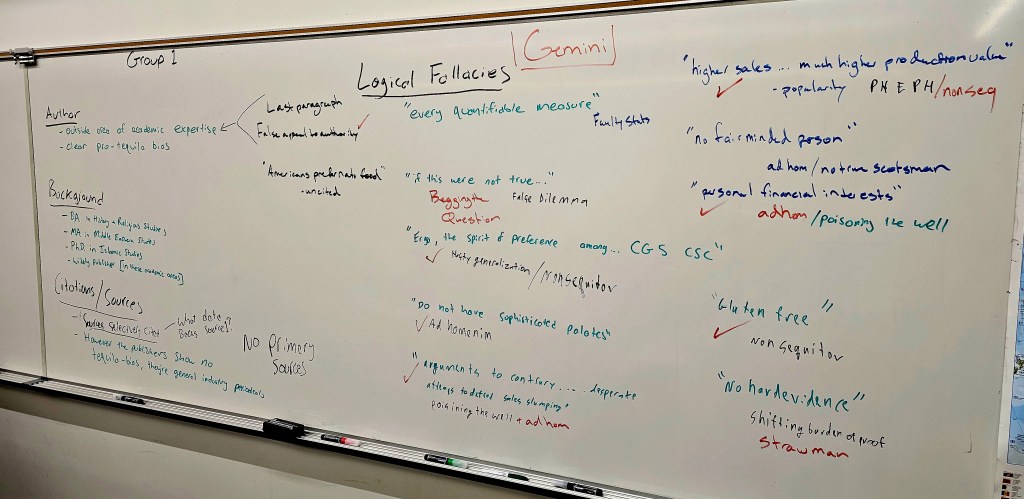 Group 1
Author
- outside area of academic expertise
- clear pro-tequila bias
Last paragraph
False appeal to authority ✓
"Americans prefer nato food"
- uncited
Background
- BA in History + Religious Studies
- MA in Middle Eastern Studies
- PhD. in Islamic Studies
- Widely Publisher [in these academic areas]
Citations/Sources
- Sources selectively cited
What data
Backs sources?
- However the publishers show no
tequila-bias, they're general industry periodicals
No Primery
Sources
Gemini
Logical Fallacies
"every quantifiable measure"
Faulty Stats
"if this were not true..."
Begging the
Question
False Dilemma
"Ergo, the spirit of preference among... CGS CSC"
✓ Hasty generalization/Nonsequitor
"Do not have sophisticated palates"
✓ Ad homenim
"arguments to contrary..... desperate
✓ attemps to defend sales slumping"
poisining the well + ad hom
"higher sales ... much higher production value"
✓ - popularity PH E PH/nonseq
"no fairminded person"
ad hom/no true scotsman
"personal financial interests"
✓ ad hom/poisoning the well
"Gluten free"
✓ Non sequitor
"No hard evidence"
shifting burden of proof
Straw man